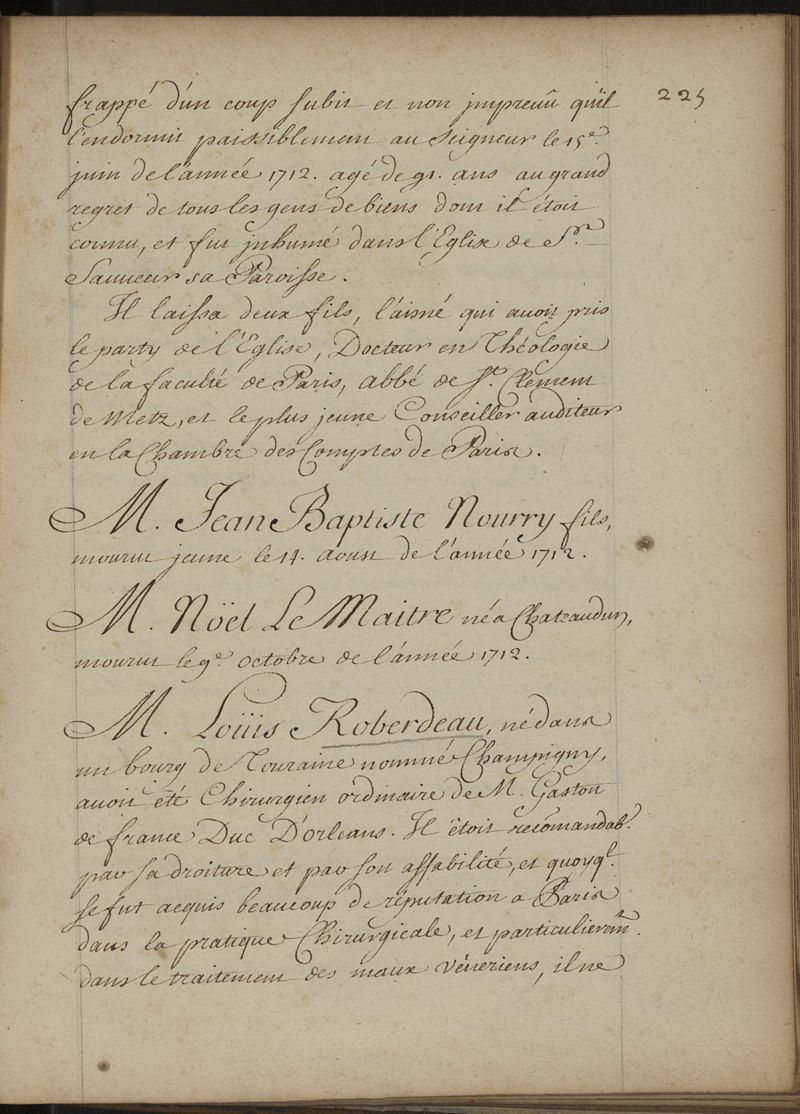 frappé d'un coup subit et non jmpreuû qu'il
l'endormit paissiblement au Seigneur le 15e.
juin de l'année 1712. agé de 91. ans au grand
regret de tous les gens de biens dont il étoit
connu, et fut jnhumé dans l'Eglise de St.
Sauueur sa Paroisse.
Il laissa deux fils, l'aisné qui auoit pris
le party de l'Eglise, Docteur en Théologie
de la faculté de Paris, abbé de St. Clement
de Metz, et le plus jeune Conseiller auditeur
en la Chambre des Comptes de Paris.
M. Jean Baptiste Nourry fils,
mourut jeune le 14. aoust de l'année 1712.
M. Nöel Le Maitre né a Chateaudun,
mourut le 9e. octobre de l'année 1712.
M. Loüis Roberdeau, né dans
un bourg de Touraine nommé Champigny,
auoit été Chirurgien ordinaire de M. Gaston
de france Duc D'orleans. Il êtoit recomandab.
par sa droiture et par son affabilité, et quoyql.
se fut acquis beaucoup de réputation a Paris
dans la pratique Chirurgicale, et particulieremt.
dans le traitement des maux véneriens, il ne
225